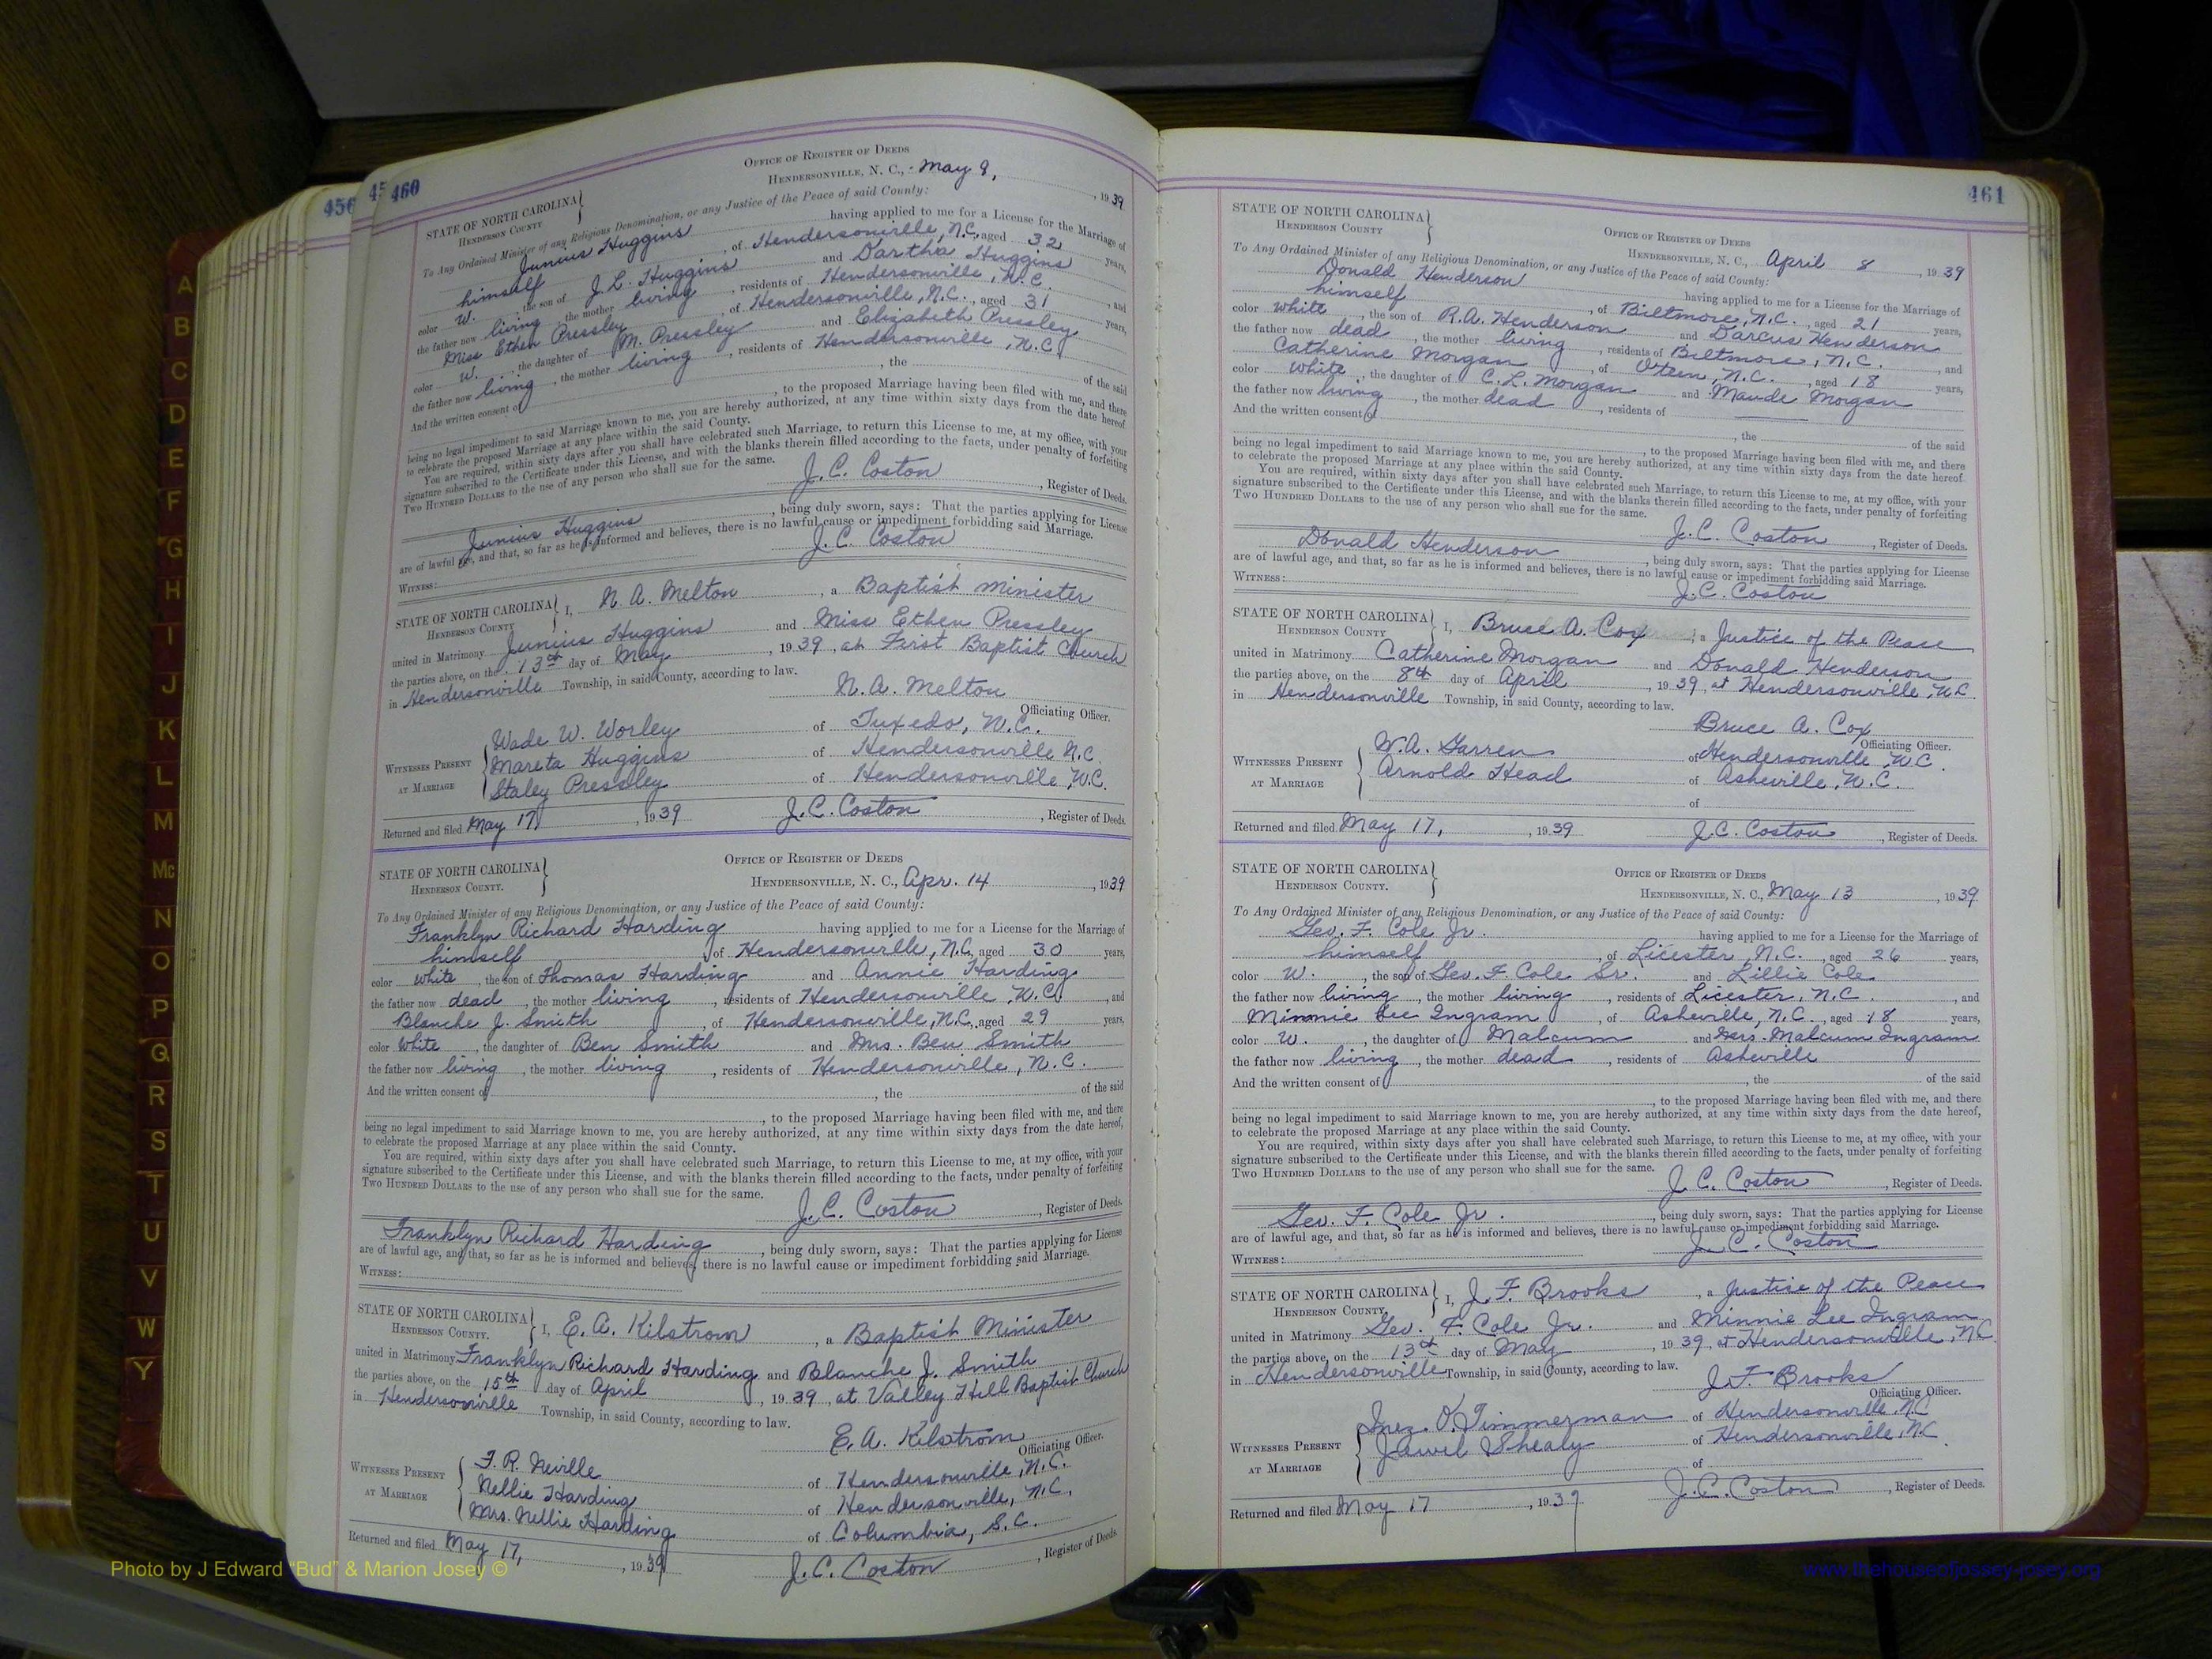 456
45
460
OFFICE OF REGISTER OF DEEDS
HENDERSONVILLE, N. C., May 9, , 1939
STATE OF NORTH CAROLINA
HENDERSON COUNTY
To Any Ordained Minister of any Religious Denomination, or any Justice of the Peace of said County:
Junius Huggins having applied to me for a License for the Marriage of
himself , of Hendersonville, N.C. aged 32 years,
color W. , the son of J. L. Huggins and Dartha Huggins
the father now living , the mother living , residents of Hendersonville, N.C. , and
Miss Ethen Pressley of Hendersonville, N.C. , aged 31 years,
color W. , the daughter of M. Pressley and Elizabeth Pressley
the father now living , the mother living , residents of Hendersonville, N.C.
And the written consent of , the of the said
, to the proposed Marriage having been filed with me, and there
being no legal impediment to said Marriage known to me, you are hereby authorized, at any time within sixty days from the date hereof
to celebrate the proposed Marriage at any place within the said County.
You are required, within sixty days after you shall have celebrated such Marriage, to return this License to me, at my office, with your
signature subscribed to the Certificate under this License, and with the blanks therein filled according to the facts, under penalty of forfeiting
TWO HUNDRED DOLLARS to the use of any person who shall sue for the same.
J. C. Coston , Register of Deeds.
Junius Huggins , being duly sworn, says: That the parties applying for License
are of lawful age, and that, so far as he is informed and believes, there is no lawful cause or impediment forbidding said Marriage.
WITNESS: J. C. Coston
STATE OF NORTH CAROLINA
HENDERSON COUNTY
I, N. A. Melton , a Baptist Minister
united in Matrimony Junius Huggins and Miss Ethen Pressley
the parties above, on the 13th day of May , 1939, at First Baptist Church
in Hendersonville Township, in said County, according to law.
N. A. Melton
Officiating Officer.
WITNESSES PRESENT
AT MARRIAGE
Wade W. Worley of Tuxedo, N.C.
Mareta Huggins of Hendersonville N.C.
Staley Pressley of Hendersonville, N.C.
Returned and filed May 17, , 1939 J. C. Coston , Register of Deeds
STATE OF NORTH CAROLINA
HENDERSON COUNTY.
OFFICE OF REGISTER OF DEEDS
HENDERSONVILLE, N. C., Apr. 14 , 1939
To Any Ordained Minister of any Religious Denomination, or any Justice of the Peace of said County:
Franklyn Richard Harding having applied to me for a License for the Marriage of
himself , of Hendersonville, N.C, aged 30 years,
color white , the son of Thomas Harding and Annie Harding
the father now dead , the mother living , residents of Hendersonville, N.C. , and
Blanche J. Smith , of Hendersonville, N.C, aged 29 years,
color White , the daughter of Ben Smith and Mrs. Ben Smith
the father now living , the mother living , residents of Hendersonville, N.C.
And the written consent of , the of the said
, to the proposed Marriage having been filed with me, and there
being no legal impediment to said Marriage known to me, you are hereby authorized, at any time within sixty days from the date hereof,
to celebrate the proposed Marriage at any place within the said County.
You are required, within sixty days after you shall have celebrated such Marriage, to return this License to me, at my office, with your
signature subscribed to the Certificate under this License, and with the blanks therein filled according to the facts, under penalty of forfeiting
TWO HUNDRED DOLLARS to the use of any person who shall sue for the same.
J. C. Coston , Register of Deeds.
Franklyn Richard Harding , being duly sworn, says: That the parties applying for License
are of lawful age, and that, so far as he is informed and believes, there is no lawful cause or impediment forbidding said Marriage.
WITNESS:
STATE OF NORTH CAROLINA
HENDERSON COUNTY.
I, E. A. Kilstrom , a Baptist Minister
united in Matrimony Franklyn Richard Harding and Blanche J. Smith
the parties above, on the 15th day of April , 1939, at Valley Hill Baptist Church
in Hendersonville Township, in said County, according to law.
E. A. Kilstrom
Officiating Officer.
WITNESSES PRESENT
AT MARRIAGE
F. R. Neville of Hendersonville, N.C.
Nellie Harding of Hendersonville, N.C.
Mrs. Nellie Harding of Columbia, S.C.
Returned and filed May 17, , 1939 J. C. Coston , Register of Deeds.
461
STATE OF NORTH CAROLINA
HENDERSON COUNTY
OFFICE OF REGISTER OF DEEDS
HENDERSONVILLE, N. C., April 8 , 1939
To Any Ordained Minister of any Religious Denomination, or any Justice of the Peace of said County:
Donald Henderson having applied to me for a License for the Marriage of
himself , of Biltmore, N.C. , aged 21 years,
color white , the son of R. A. Henderson and Darcus Henderson
the father now dead , the mother living , residents of Biltmore, N.C. , and
Catherine Morgan , of Oteen, N.C. , aged 18 years,
color white , the daughter of C. L. Morgan and Maude Morgan
the father now living , the mother dead , residents of
And the written consent of , the of the said
, to the proposed Marriage having been filed with me, and there
being no legal impediment to said Marriage known to me, you are hereby authorized, at any time within sixty days from the date hereof
to celebrate the proposed Marriage at any place within the said County.
You are required, within sixty days after you shall have celebrated such Marriage, to return this License to me, at my office, with your
signature subscribed to the Certificate under this License, and with the blanks therein filled according to the facts, under penalty of forfeiting
TWO HUNDRED DOLLARS to the use of any person who shall sue for the same.
J. C. Coston , Register of Deeds.
Donald Henderson , being duly sworn, says: That the parties applying for License
are of lawful age, and that, so far as he is informed and believes, there is no lawful cause or impediment forbidding said Marriage.
WITNESS: J. C. Coston
STATE OF NORTH CAROLINA
HENDERSON COUNTY
I, Bruce A. Cox , a Justice of the Peace
united in Matrimony Catherine Morgan and Donald Henderson
the parties above, on the 8th day of April , 1939, at Hendersonville, N.C.
in Hendersonville Township, in said County, according to law.
Bruce A. Cox
Officiating Officer.
WITNESSES PRESENT
AT MARRIAGE
W. A. Garren of Hendersonville, N.C.
Arnold Head of Asheville, N.C.
of
Returned and filed May 17, , 1939 J. C. Coston , Register of Deeds.
STATE OF NORTH CAROLINA
HENDERSON COUNTY.
OFFICE OF REGISTER OF DEEDS
HENDERSONVILLE, N. C., May 13 , 1939
To Any Ordained Minister of any Religious Denomination, or any Justice of the Peace of said County:
Geo. F. Cole Jr. having applied to me for a License for the Marriage of
himself , of Licester, N.C. , aged 26 years,
color W. , the son of Geo. F. Cole Sr. and Lillie Cole
the father now living , the mother living , residents of Licester, N.C. , and
Minnie Lee Ingram , of Asheville, N.C. , aged 18 years,
color W. , the daughter of Malcum and Mrs. Malcum Ingram
the father now living , the mother dead , residents of Asheville
And the written consent of , the of the said
, to the proposed Marriage having been filed with me, and there
being no legal impediment to said Marriage known to me, you are hereby authorized, at any time within sixty days from the date hereof,
to celebrate the proposed Marriage at any place within the said County.
You are required, within sixty days after you shall have celebrated such Marriage, to return this License to me, at my office, with your
signature subscribed to the Certificate under this License, and with the blanks therein filled according to the facts, under penalty of forfeiting
TWO HUNDRED DOLLARS to the use of any person who shall sue for the same.
J. C. Coston , Register of Deeds.
Geo. F. Cole Jr. , being duly sworn, says: That the parties applying for License
are of lawful age, and that, so far as he is informed and believes, there is no lawful cause or impediment forbidding said Marriage.
WITNESS: J. C. Coston
STATE OF NORTH CAROLINA
HENDERSON COUNTY.
I, J. F. Brooks , a Justice of the Peace
united in Matrimony Geo. F. Cole Jr. and Minnie Lee Ingram
the parties above, on the 13th day of May , 1939, at Hendersonville, N.C.
in Hendersonville Township, in said County, according to law.
J. F. Brooks
Officiating Officer.
WITNESSES PRESENT
AT MARRIAGE
Inez O. Timmerman of Hendersonville, N.C
Jewel Shealy of Hendersonville, N.C.
of
Returned and filed May 17 , 1939 J. C. Coston , Register of Deeds.
A
B
C
D
E
F
G
H
I
J
K
L
M
Mc
N
O
P
Q
R
S
T
U
V
W
Y
Photo by J Edward "Bud" & Marion Josey ©
www.thehouseofjossey-josey.org